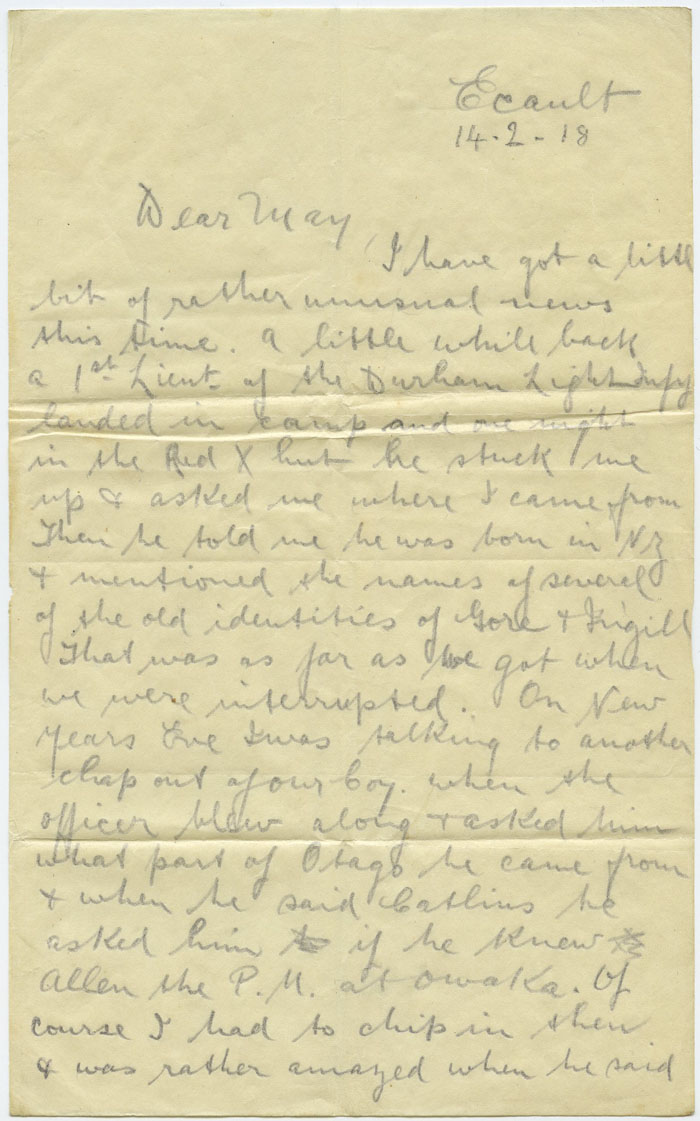 Ecault
14-2-18
Dear May,
I have got a little
bit of rather unusual news
this time. A little while back
a 1st Lieut. of the Durham Light Infy
landed in camp and one night
in the Red X hut he stuck me
up & asked me where I came from
Then he told me he was born in NZ
& mentioned the names of several
of the old identities of Gore & In'gill
That was as far as we got when
we were interrupted. On New
Years Eve I was talking to another
chap out of our Coy. when the
officer blew along & asked him
what part of Otago he came from
& when he said Catlins he
asked him if he knew
Allen the P.M. at Owaka. Of
course I had to chip in then
& was rather amazed when he said